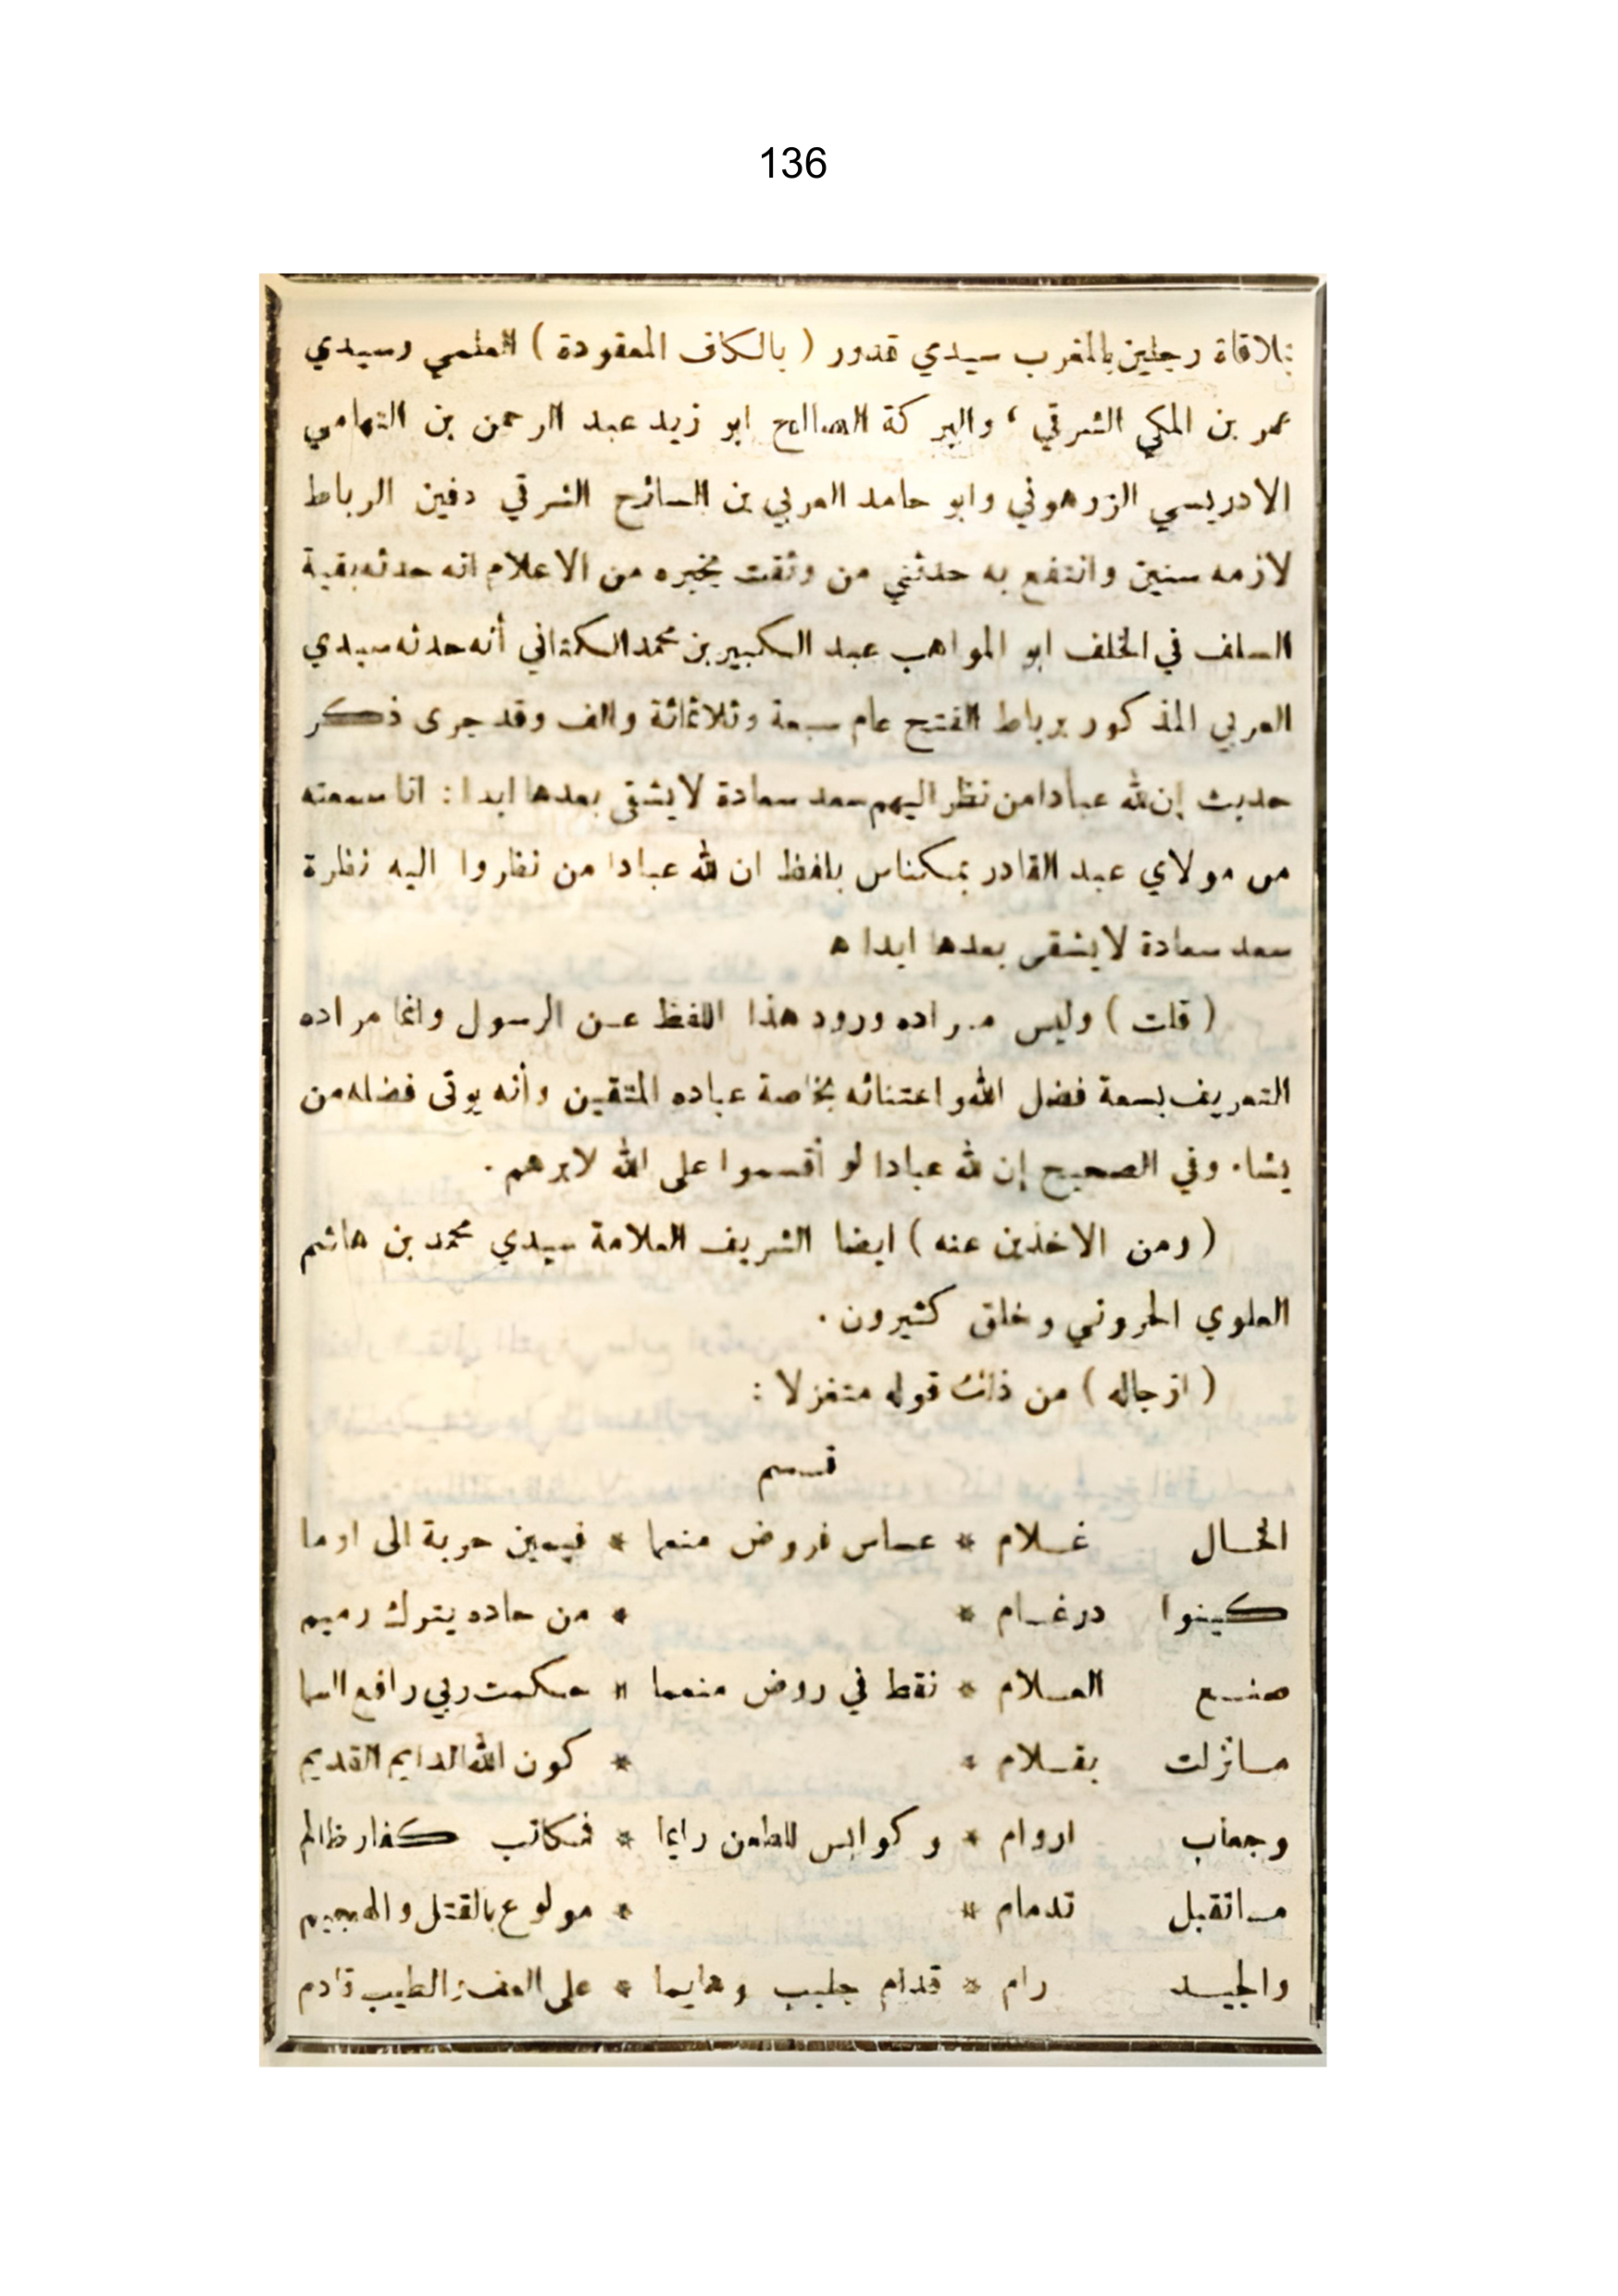 136
بملاقاة رجلين بالمغرب سيدي قدور ( بالكاف المعقودة ) العلمي وسيدي
عمر بن المكي الشرقي ، والبركة الصالح ابو زيد عبد الرحمن بن التهامي
الادريسي الزرهوني وابو حامد العربي بن السائح الشرقي دفين الرباط
لازمه سنين وانتفع به حدثني من وثقت بخبره من الاعلام انه حدثه بقية
السلف في الخلف ابو المواهب عبد الكبير بن محمد الكتاني أنه حدثه سيدي
العربي المذكور برباط الفتح عام سبعة وثلاثمائة والف وقد جرى ذكر
حديث إن لله عبادا من نظر اليهم سعد سعادة لا يشقى بعدها ابدا : انا سمعته
من مولاي عبد القادر بمكناس بلفظ ان لله عبادا من نظروا اليه نظرة
سعد سعادة لا يشقى بعدها ابدا ه
( قلت ) وليس مراده ورود هذا اللفظ عن الرسول وانما مراده
التعريف بسعة فضل الله واعتنائه بخاصة عباده المتقين وأنه يوتى فضله من
يشاء وفي الصحيح إن لله عبادا لو أقسموا على الله لابرهم .
( ومن الاخذين عنه ) ايضا الشريف العلامة سيدي محمد بن هاشم
العلوي الحروني وخلق كثيرون .
( ازجاله ) من ذلك قوله متغزلا :
قسم
الخال غلام * عساس فروض منعما * فيمين حربة الى اوما
كينوا درغام * * من حاده يترك رميم
صنع العلام * نقط في روض منعما * حكمت ربي رافع السما
مانزلت بقلام * * كون الله الدايم القديم
وجعاب اروام * وكوابس للطعن رايما * فمكاتب كفار ظالم
ماتقبل تدمام * * مولوع بالقتل والهجيم
والجيد رام * قدام جليب وهايما * على الطيب قادم